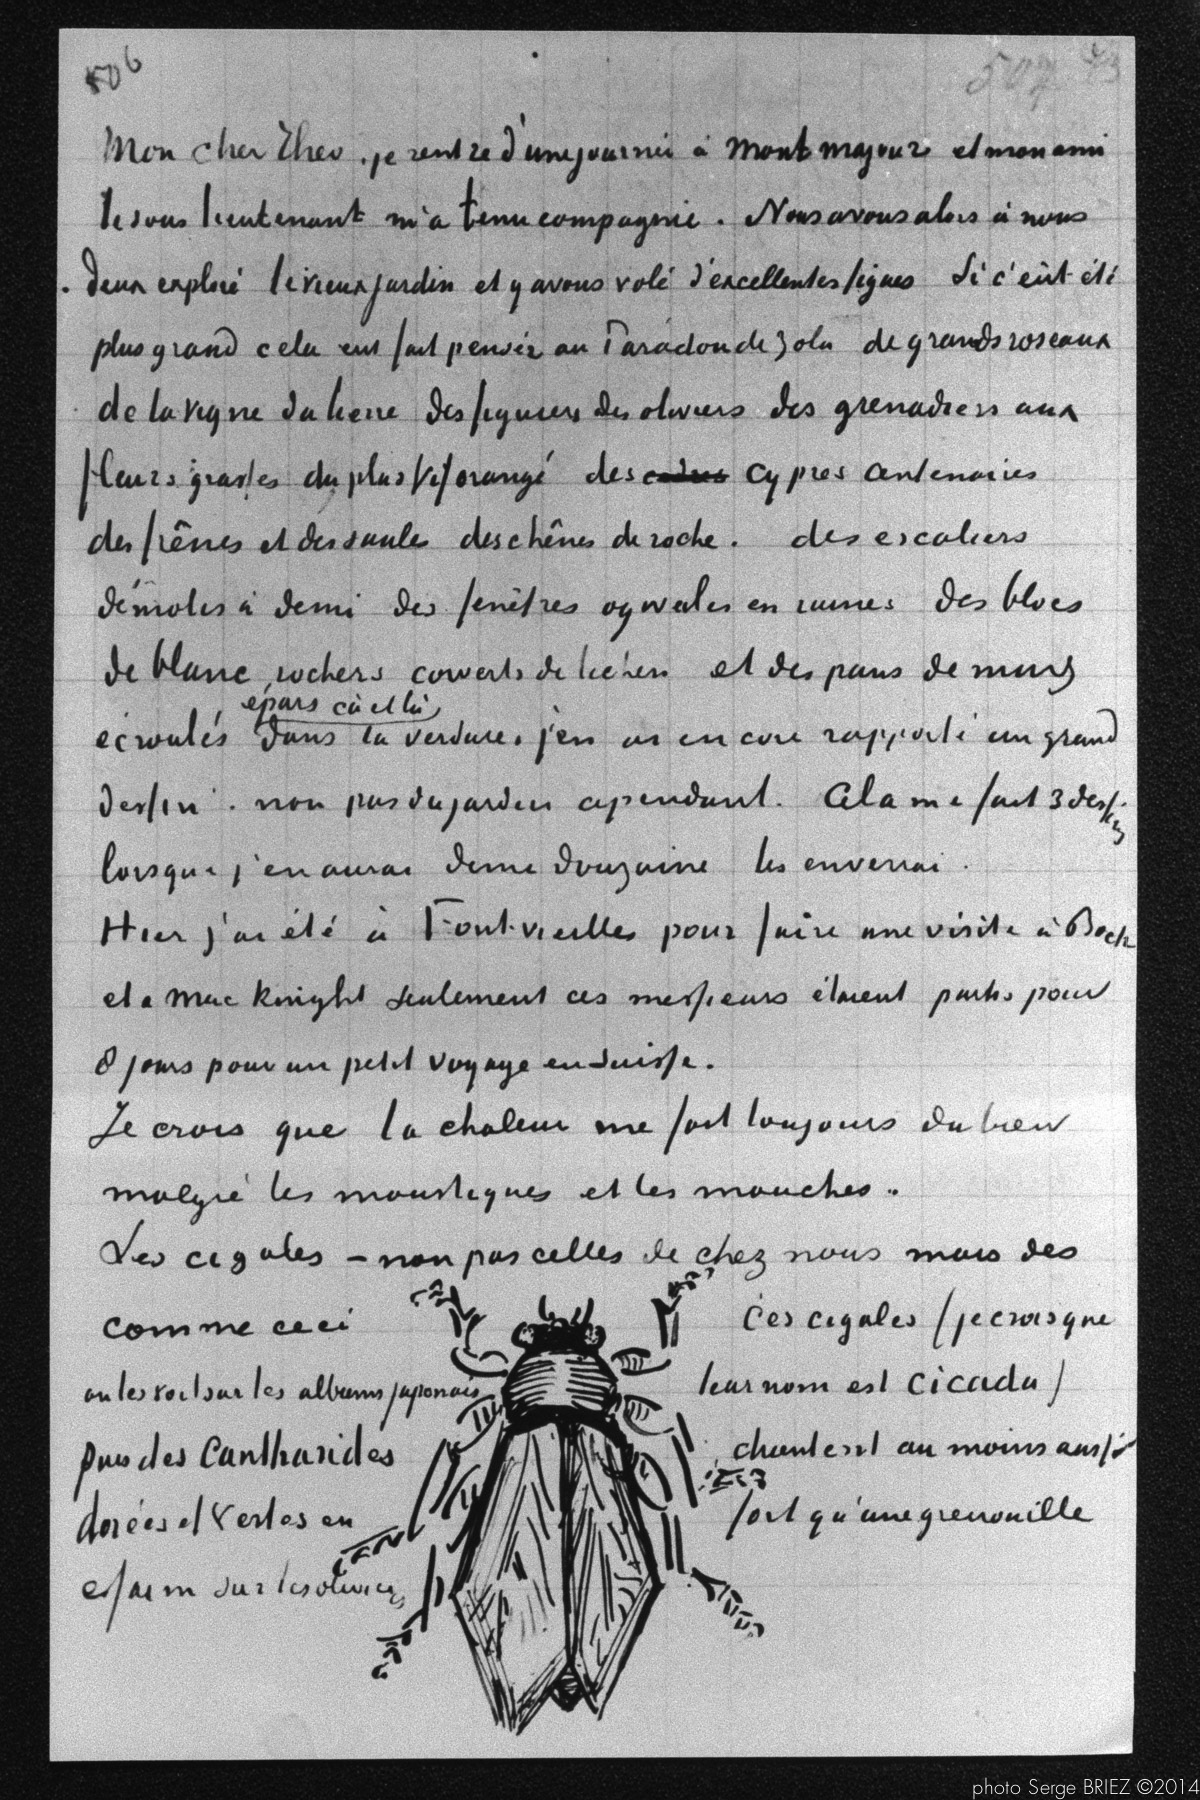 506
507 43
Mon cher Theo, je rentre d'une journée à Mont majour et mon ami
le sous lieutenant m'a tenu compagnie. Nous avons alors à nous
deux exploré le vieux jardin et y avons volé d'excellentes figues Si c'eut été
plus grand cela eut fait penser au Paradou de Zola de grands roseaux
de la vigne du lierre des figuiers des oliviers des grenadiers aux
fleurs grasses du plus vif orangé des cyprès centenaires
des frênes et des saules des chênes de roche. des escaliers
démolis à demi des fenêtres ogivales en ruines des blocs
de blanc rochers couverts de lichen et des pans de murs
épars çà et là
écroulés dans la verdure. j'en ai encore rapporté un grand
dessin. non pas du jardin cependant. Cela me fait 3 dessins
lorsque j'en aurai demi douzaine les enverrai.
Hier j'ai été à Font-vieilles pour faire une visite à Bock
et a Mac Knight seulement ces messieurs étaient partis pour
8 jours pour un petit voyage en Suisse.
Je crois que la chaleur me fait toujours du bien
malgré les moustiques et les mouches.
Les cigales – non pas celles de chez nous mais des
comme ceci
on les voit sur les albums japonais
puis des Cantharides
dorées et vertes en
essaim sur les oliviers
Ces cigales (je crois que
leur nom est cicada)
chantent au moins aussi
fort qu'une grenouille
photo Serge BRIEZ ©2014